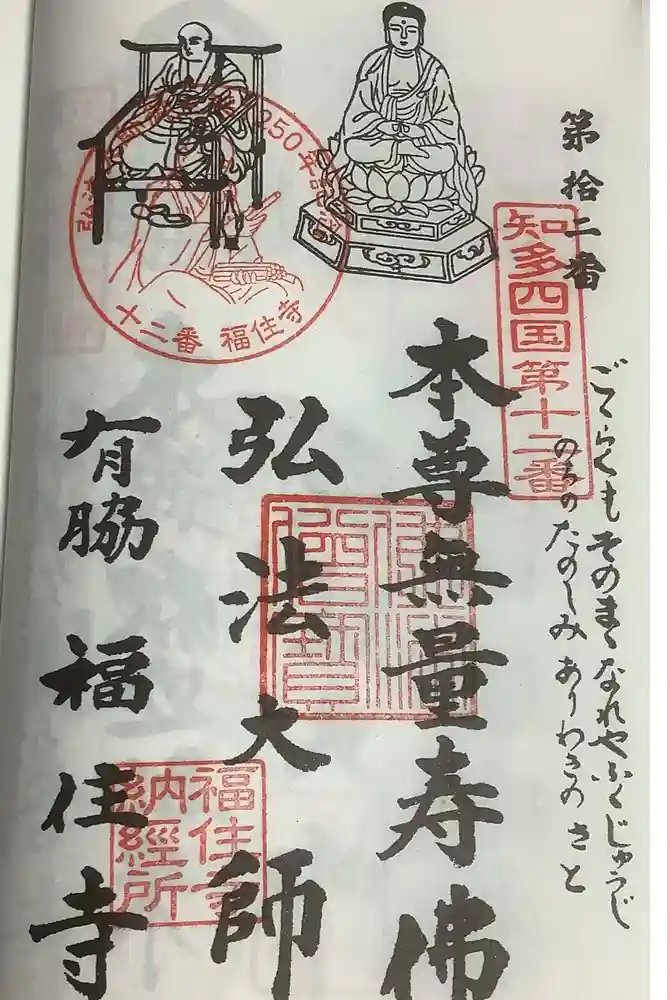 第拾二番
知多四国第十二番
ごくらくもそのまゝなれやふくじゅうじ
のちのたのしみありわきのさと
本尊無量寿佛
弘法大師
有脇 福住寺
十二番 福住寺
福住寺
納經所